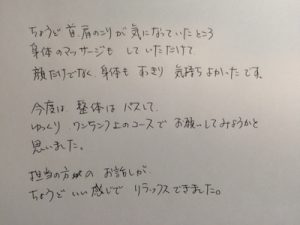 ちょうど首、肩のこりが気になっていたところ
身体のマッサージも していただけて
顔だけでなく、身体も すっきり 気持ちよかったです。
今度は 整体は パスして、
ゆっくり ワンランク上のコースで お願いしてみようかと
思いました。
担当の方の お話しが、
ちょうど いい感じで リラックスできました。